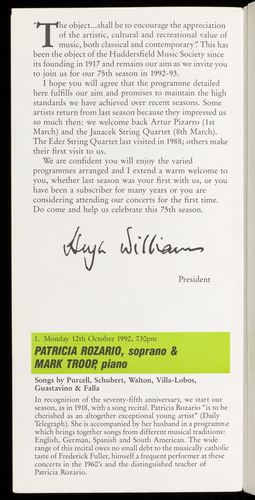 "The object...shall be to encourage the appreciation
of the artistic, cultural and recreational value of
music, both classical and contemporary". This has
been the object of the Huddersfield Music Society since
its founding in 1917 and remains our aim as we invite you
to join us for our 75th season in 1992-93.
I hope you will agree that the programme detailed
here fulfills our aim and promises to maintain the high
standards we have achieved over recent seasons. Some
artists return from last season because they impressed us
so much then: we welcome back Artur Pizarro (1st
March) and the Janacek String Quartet (8th March).
The Eder String Quartet last visited in 1988; others make
their first visit to us.
We are confident you will enjoy the varied
programmes arranged and I extend a warm welcome to
you, whether last season was your first with us, or you
have been a subscriber for many years or you are
considering attending our concerts for the first time.
Do come and help us celebrate this 75th season.
Hugh Williams
President
1. Monday 12th October 1992, 7.30pm
PATRICIA ROZARIO, soprano &
MARK TROOP, piano
Songs by Purcell, Schubert, Walton, Villa-Lobos,
Guastavino & Falla
In recognition of the seventy-fifth anniversary, we start our
season, as in 1918, with a song recital. Patricia Rozario "is to be
cherished as an altogether exceptional young artist" (Daily
Telegraph). She is accompanied by her husband in a programme
which brings together songs from different musical traditions:
English, German, Spanish and South American. The wide
range of this recital owes no small debt to the musically catholic
taste of Frederick Fuller, himself a frequent performer at these
concerts in the 1960's and the distinguished teacher of
Patricia Rozario.